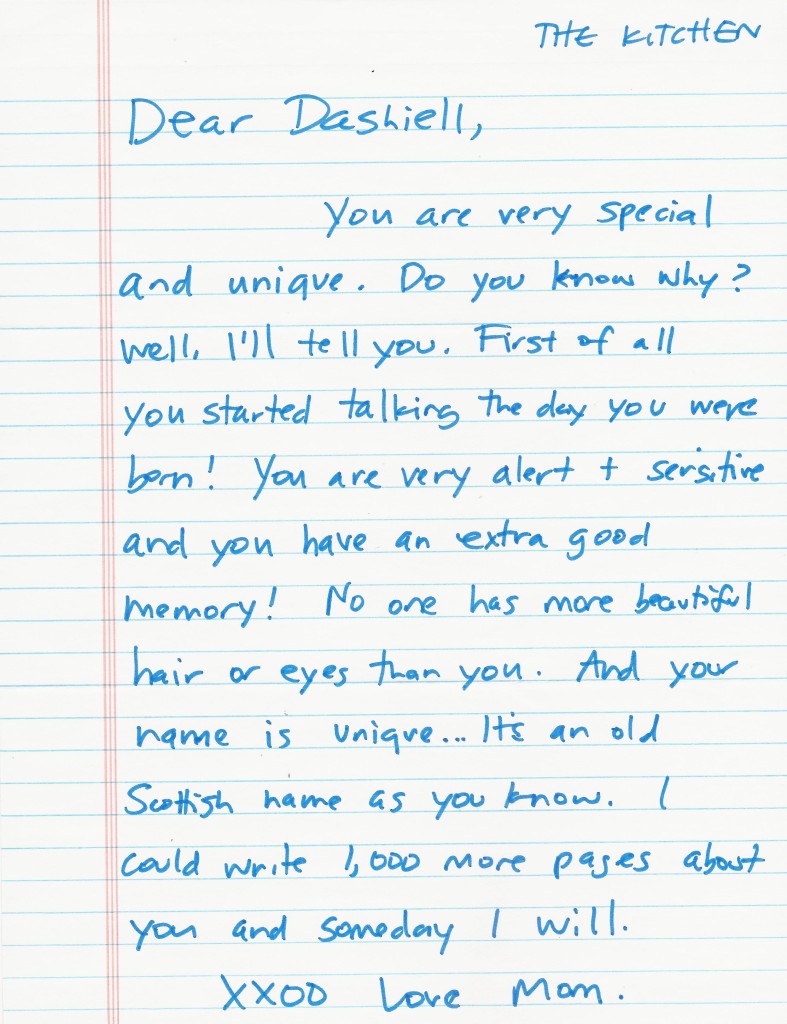 THE KITCHEN
Dear Dashiell,
You are very special
and unique. Do you know why?
Well, I'll tell you. First of all
you started talking the day you were
born! You are very alert + sensitive
and you have an extra good
memory! No one has more beautiful
hair or eyes than you. And your
name is unique... It's an old
Scottish name as you know. I
could write 1,000 more pages about
you and someday I will.
XXOO Love Mom.